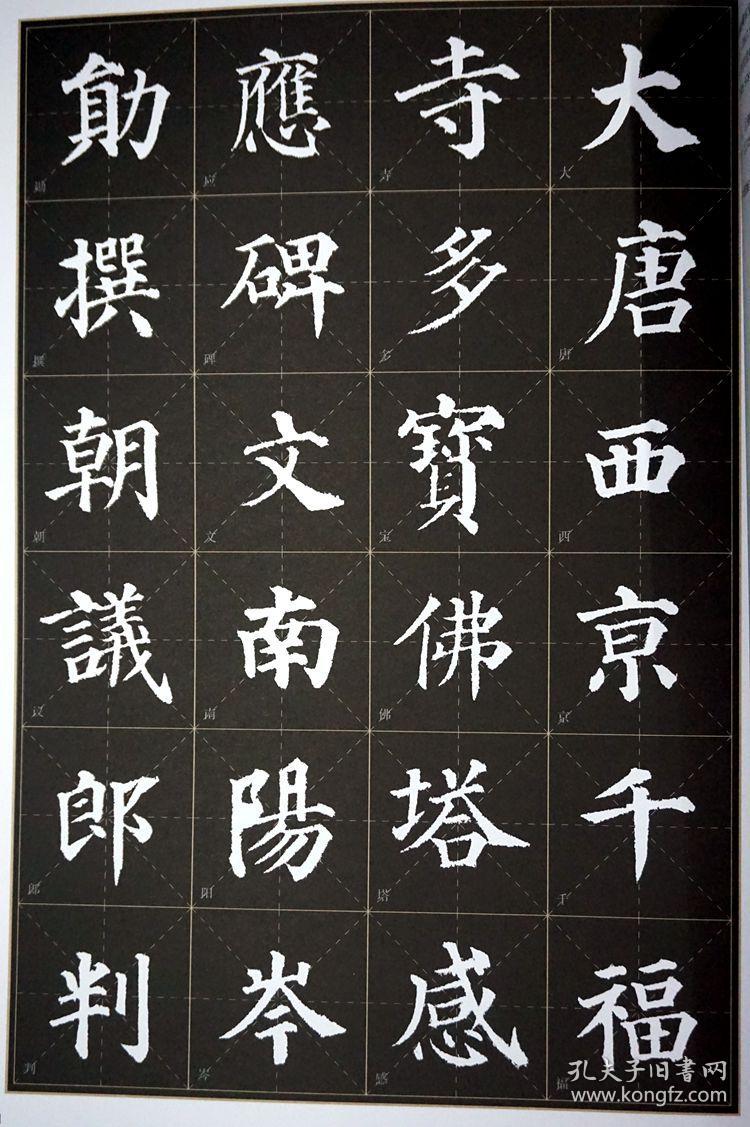 大唐西京千福
寺多寶佛塔感
應碑文南陽岑
勛撰朝議郎判
大
唐
西
京
千
福
寺
多
宝
佛
塔
感
应
碑
文
南
阳
岑
勋
撰
朝
议
郎
判
孔夫子旧書网
www.kongfz.com